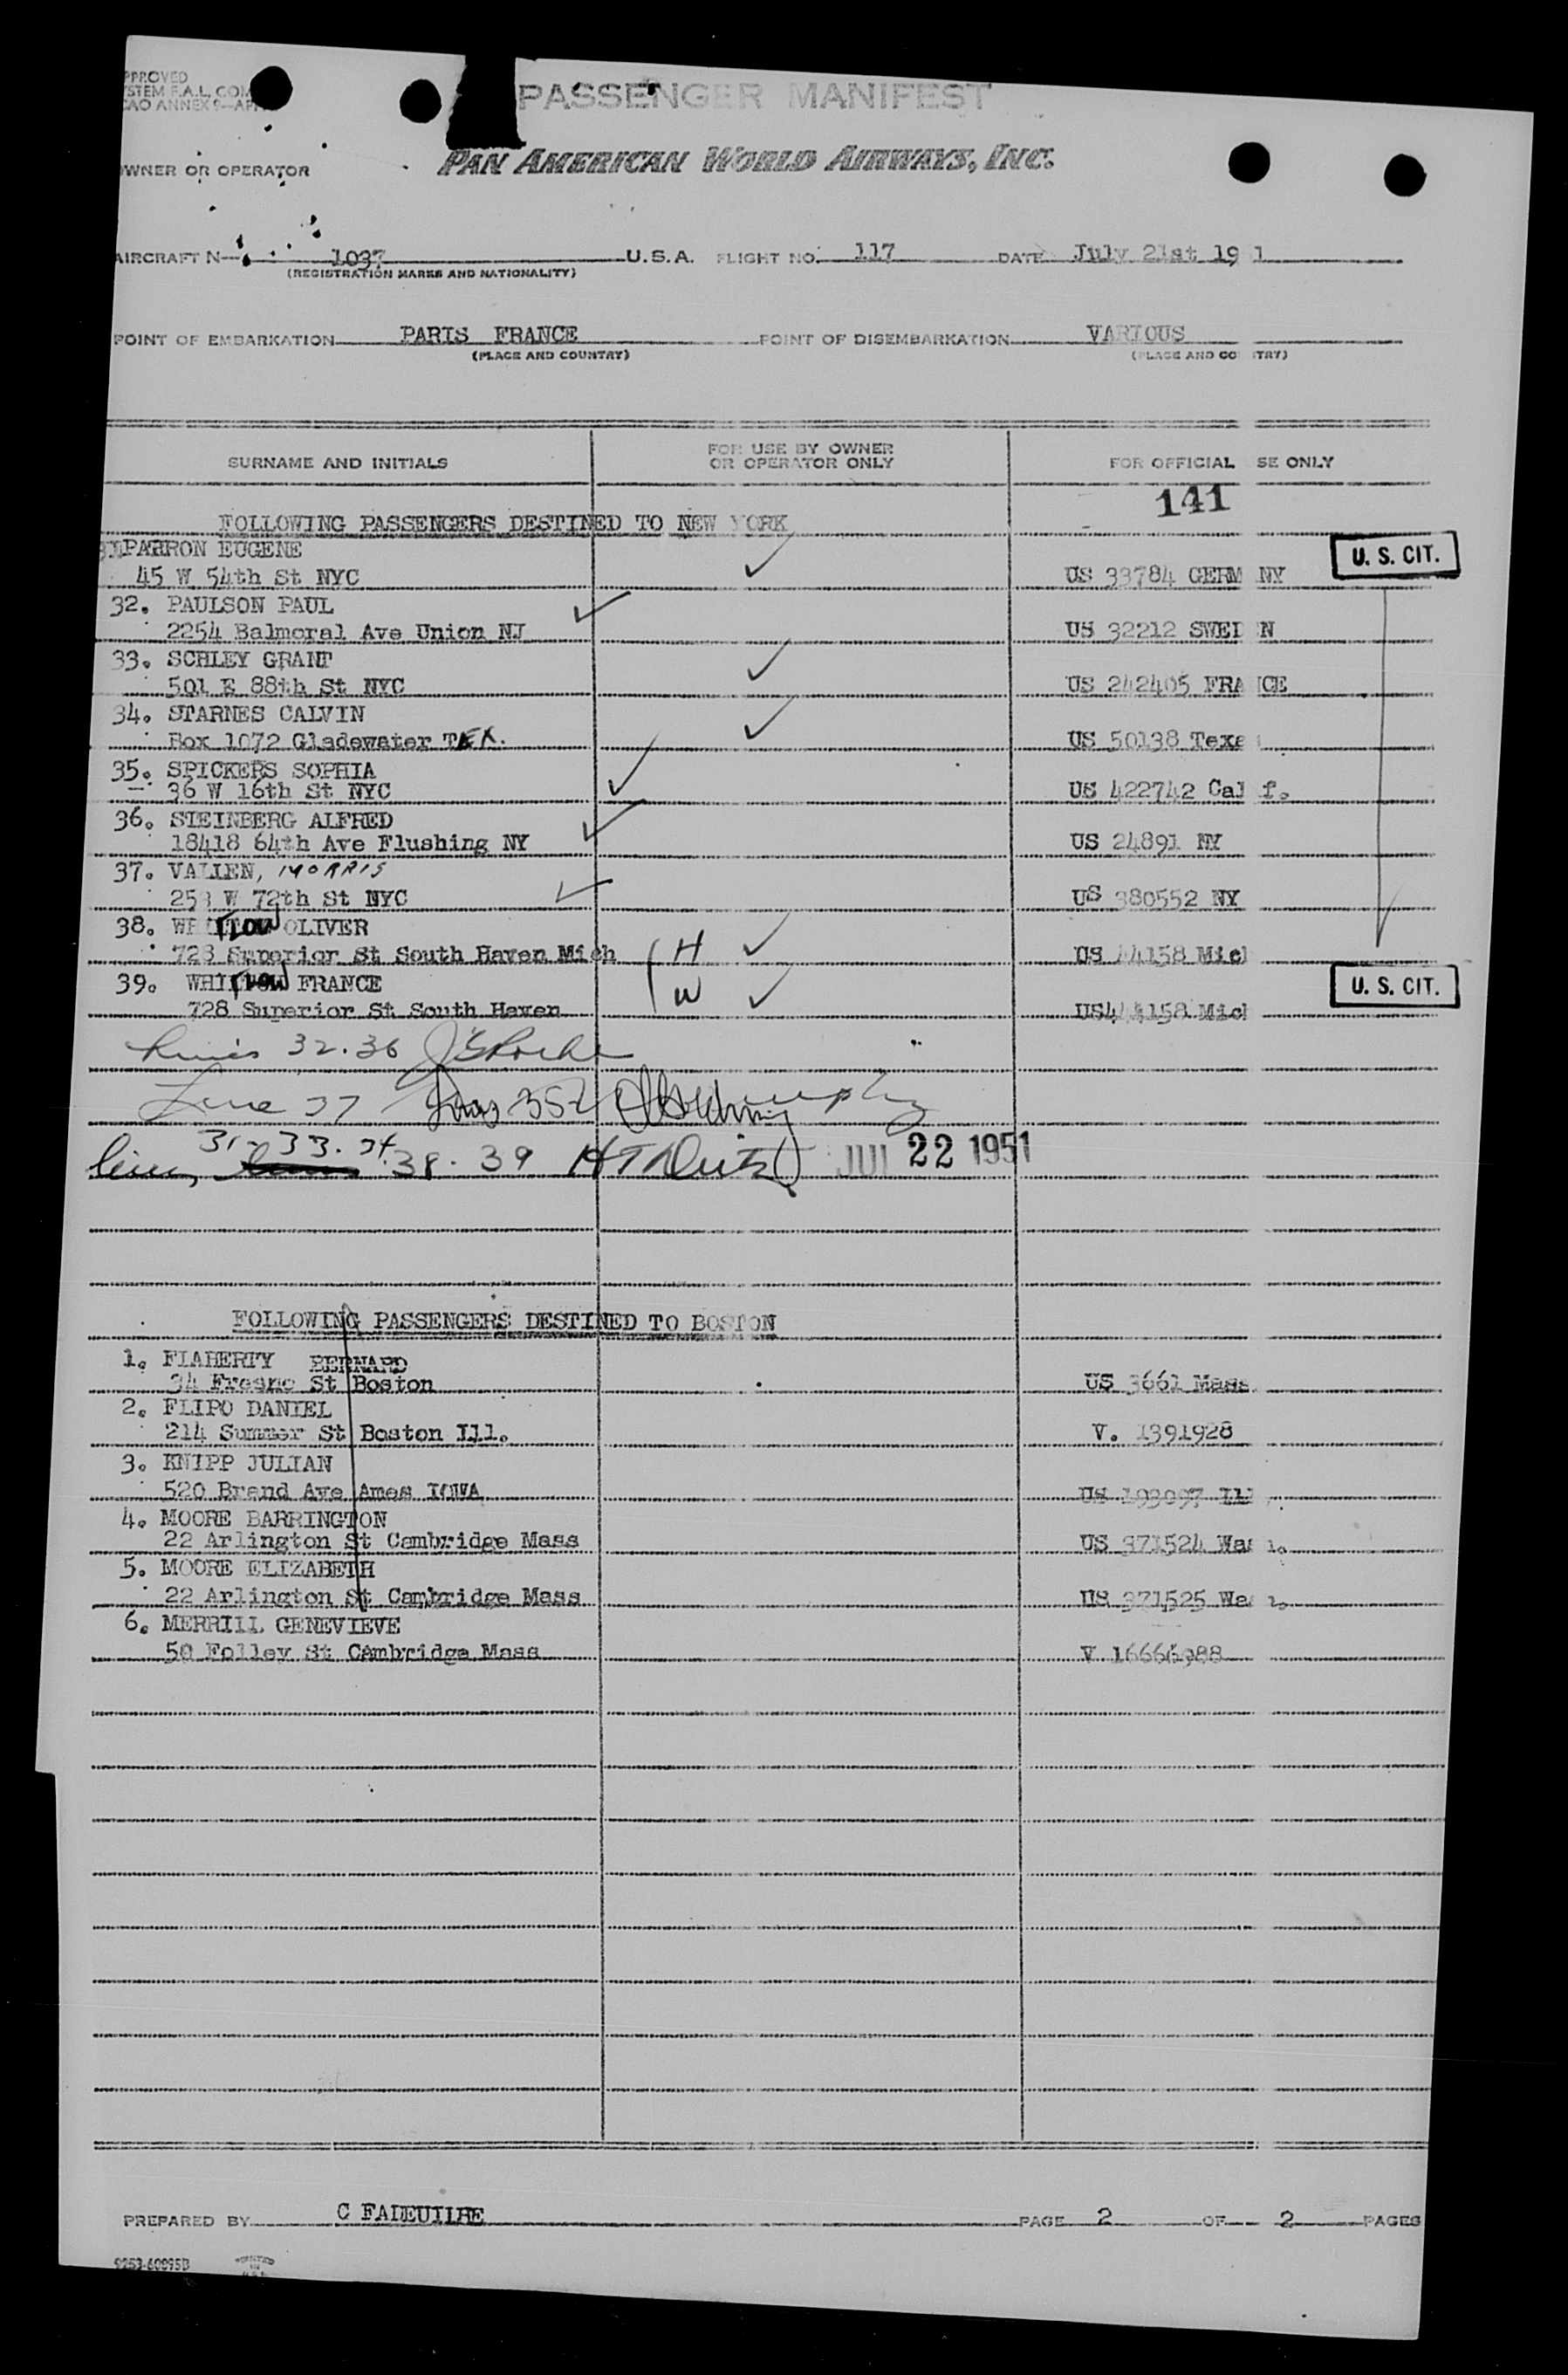 PASSENGER MANIFEST
OWNER OR OPERATOR
PAN AMERICAN WORLD AIRWAYS, INC.
AIRCRAFT N— 1037 U.S.A. FLIGHT NO. 117 DATE July 21st 19 1
(REGISTRATION MARKS AND NATIONALITY)
POINT OF EMBARKATION PARIS FRANCE POINT OF DISEMBARKATION VARIOUS
(PLACE AND COUNTRY) (PLACE AND CO TRY)
SURNAME AND INITIALS FOR USE BY OWNER OR OPERATOR ONLY FOR OFFICIAL SE ONLY
141
FOLLOWING PASSENGERS DESTINED TO NEW YORK
PARRON EUGENE
45 W 54th St NYC US 33784 GERM NY
U. S. CIT.
32. PAULSON PAUL
2254 Balmoral Ave Union NJ US 32212 SWED N
33. SCHLEY GRANT
501 E 88th St NYC US 242405 FRA CE
34. STARNES CALVIN
Box 1072 Gladewater TEX. US 50138 Texa
35. SPICKERS SOPHIA
36 W 16th St NYC US 422742 Cal f.
36. STEINBERG ALFRED
18418 64th Ave Flushing NY US 24891 NY
37. VALIEN, MORRIS
25 W 72th St NYC US 380552 NY
38. OLIVER
728 Superior St South Haven Mich H US 44158 Mic
39. FRANCE
728 Superior St South Haven W US 44158 Mic
U. S. CIT.
32. 36
Line 37
31 33. 34
38. 39 JUL 22 1951
FOLLOWING PASSENGERS DESTINED TO BOSTON
1. FLAHERTY BERNARD
34 Fresno St Boston US 3661 Mass.
2. FLIPO DANIEL
214 Summer St Boston Ill. V. 1391928
3. KNIPP JULIAN
520 Brand Ave Ames IOWA US 193097 Ill
4. MOORE BARRINGTON
22 Arlington St Cambridge Mass US 371524 Wa
5. MOORE ELIZABETH
22 Arlington St Cambridge Mass US 371525 Wa
6. MERRILL GENEVIEVE
50 Folley St Cambridge Mass V 16666988
PREPARED BY C FADEUILHE PAGE 2 OF 2 PAGES
9253-60095B